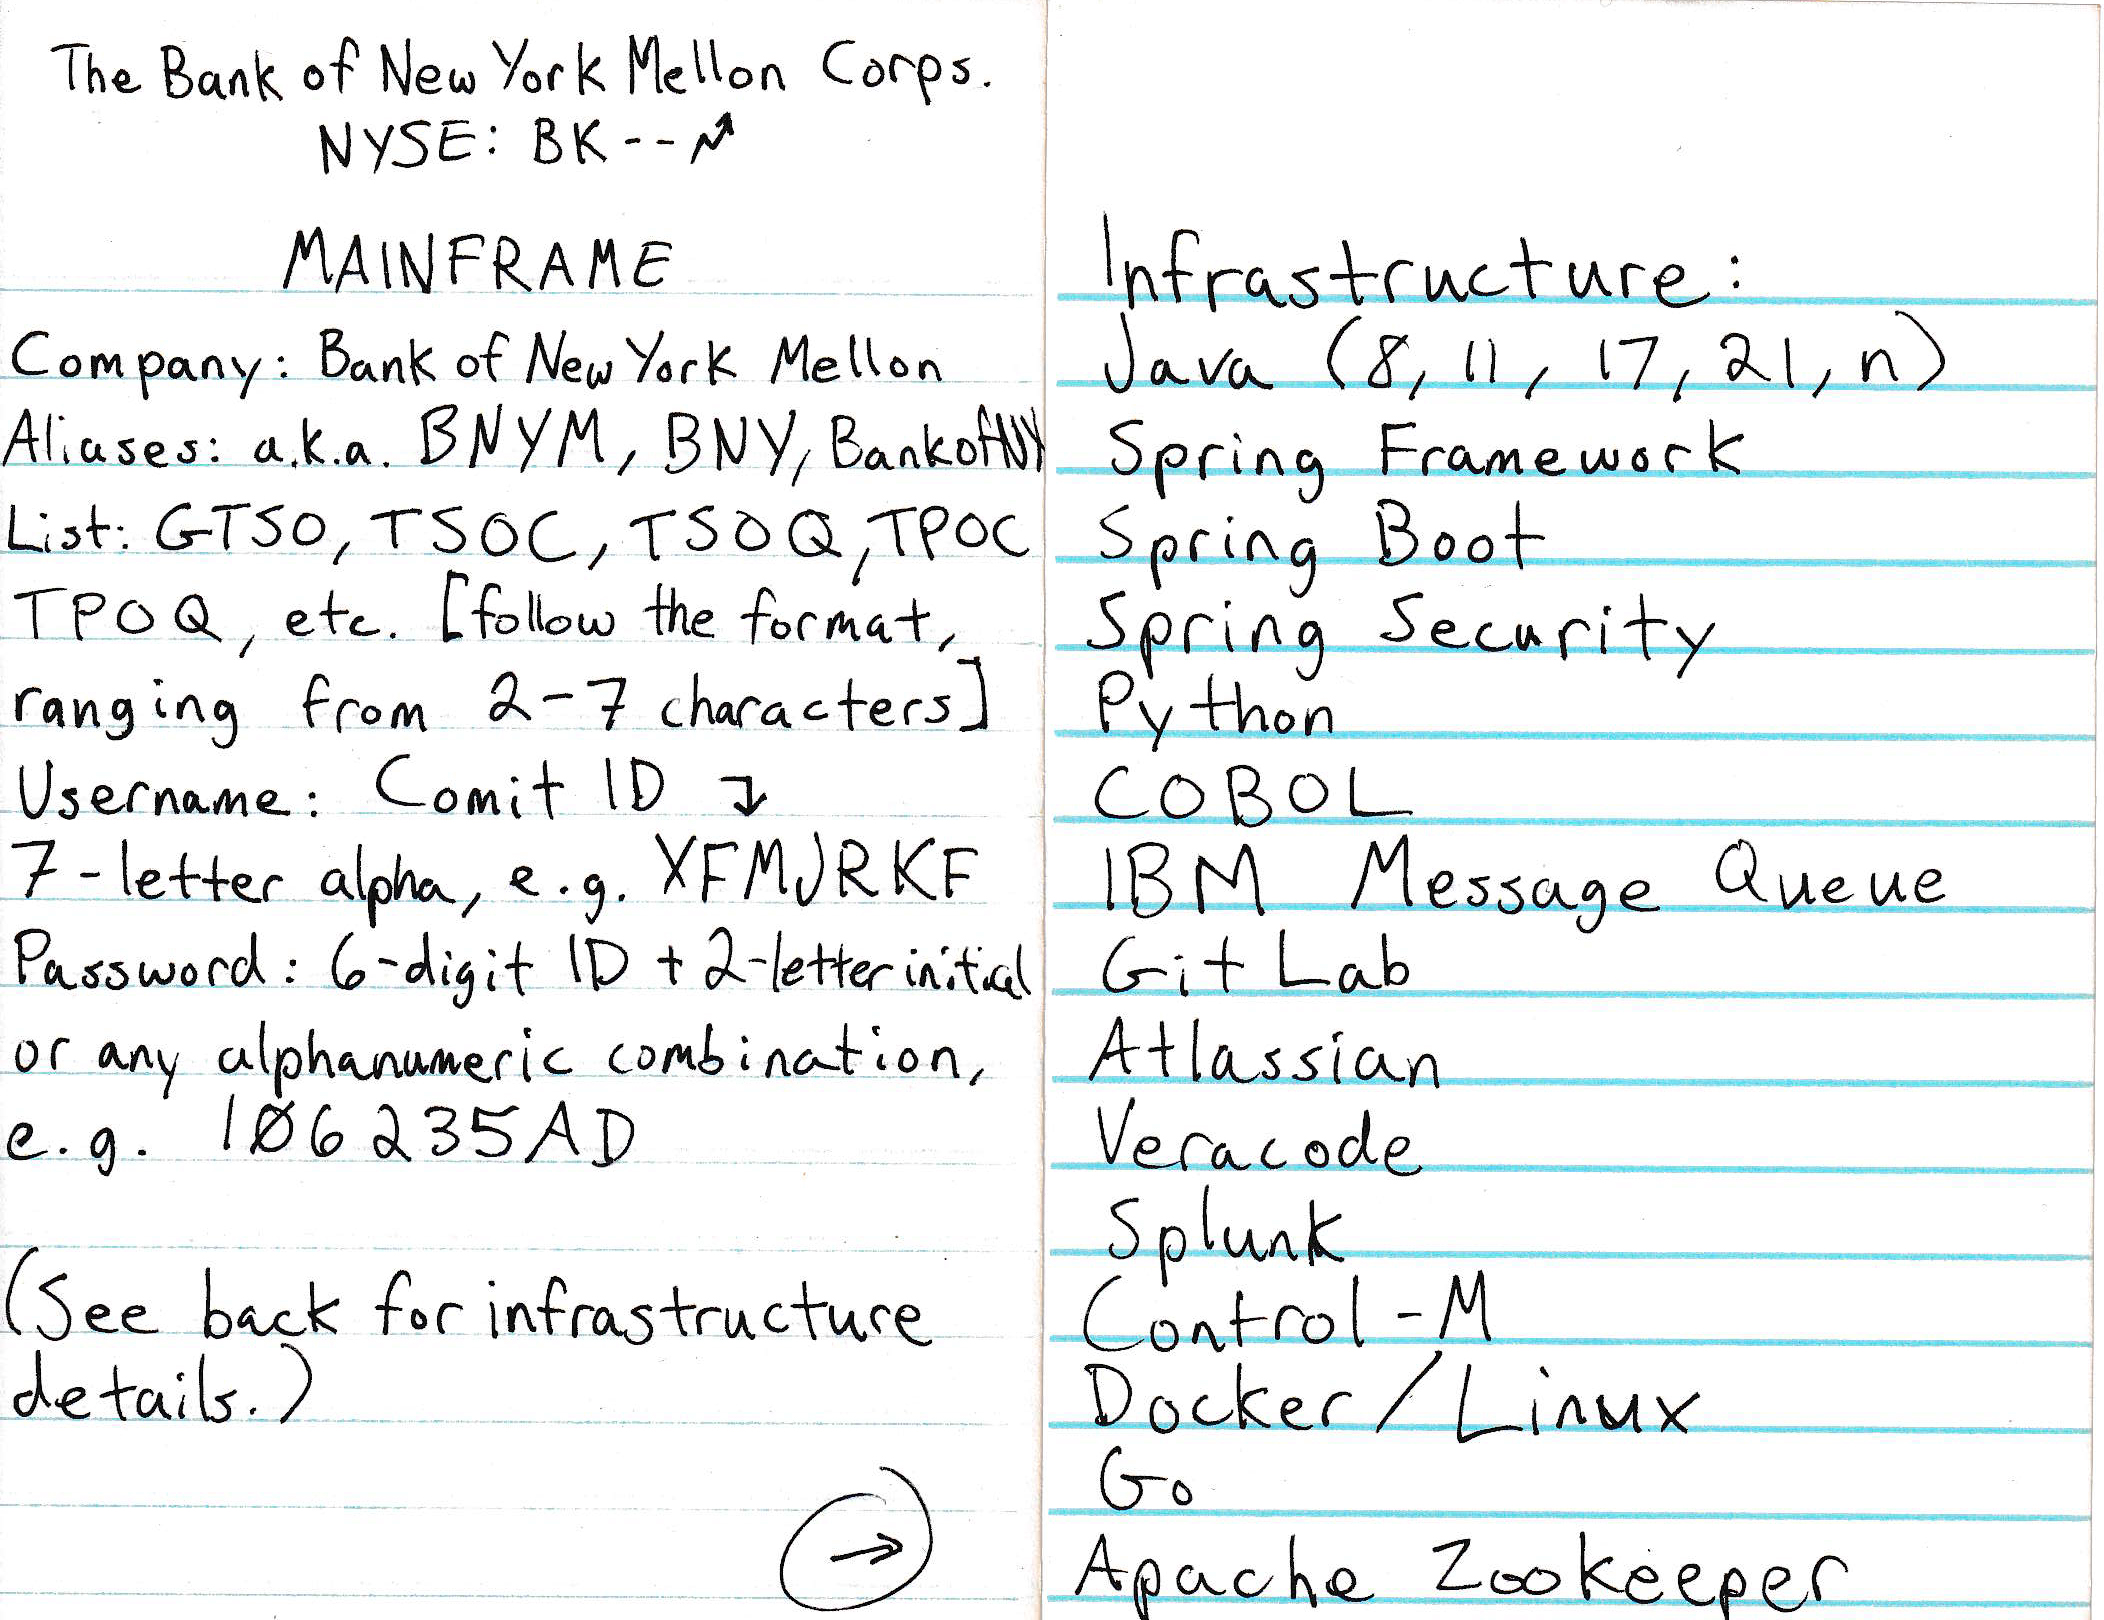 The Bank of New York Mellon Corps.
NYSE: BK --
MAINFRAME
Company: Bank of New York Mellon
Aliases: a.k.a. BNYM, BNY, BankofNY
List: GTSO, TSOC, TSOQ, TPOC
TPOQ, etc. [follow the format,
ranging from 2-7 characters]
Username: Comit ID ↴
7-letter alpha, e.g. XFMJRKF
Password: 6-digit ID + 2-letter initial
or any alphanumeric combination,
e.g. 1Ø6235AD
(See back for infrastructure
details.)
→
Infrastructure:
Java (8, 11, 17, 21, n)
Spring Framework
Spring Boot
Spring Security
Python
COBOL
IBM Message Queue
GitLab
Atlassian
Veracode
Splunk
Control-M
Docker/Linux
Go
Apache Zookeeper